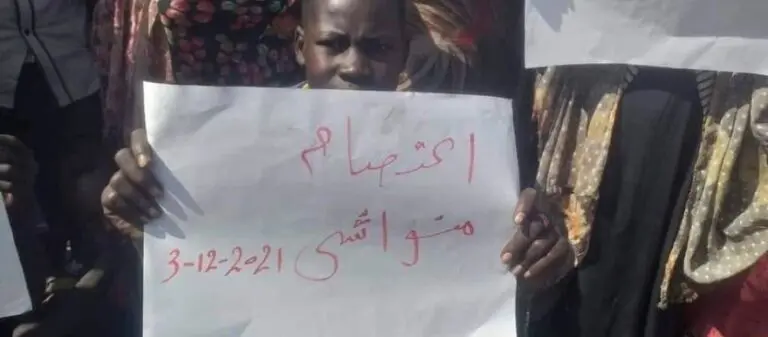 اعتصام
منواشى 3-12-2021